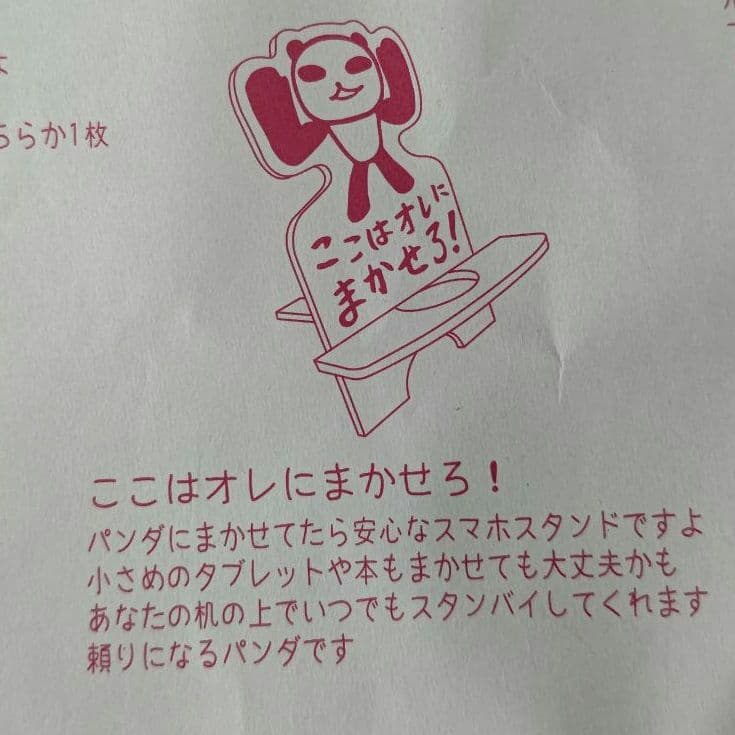 ちらか1枚
ここはオレに
まかせろ!
ここはオレにまかせろ!
パンダにまかせてたら安心なスマホスタンドですよ
小さめのタブレットや本もまかせても大丈夫かも
あなたの机の上でいつでもスタンバイしてくれます
頼りになるパンダです